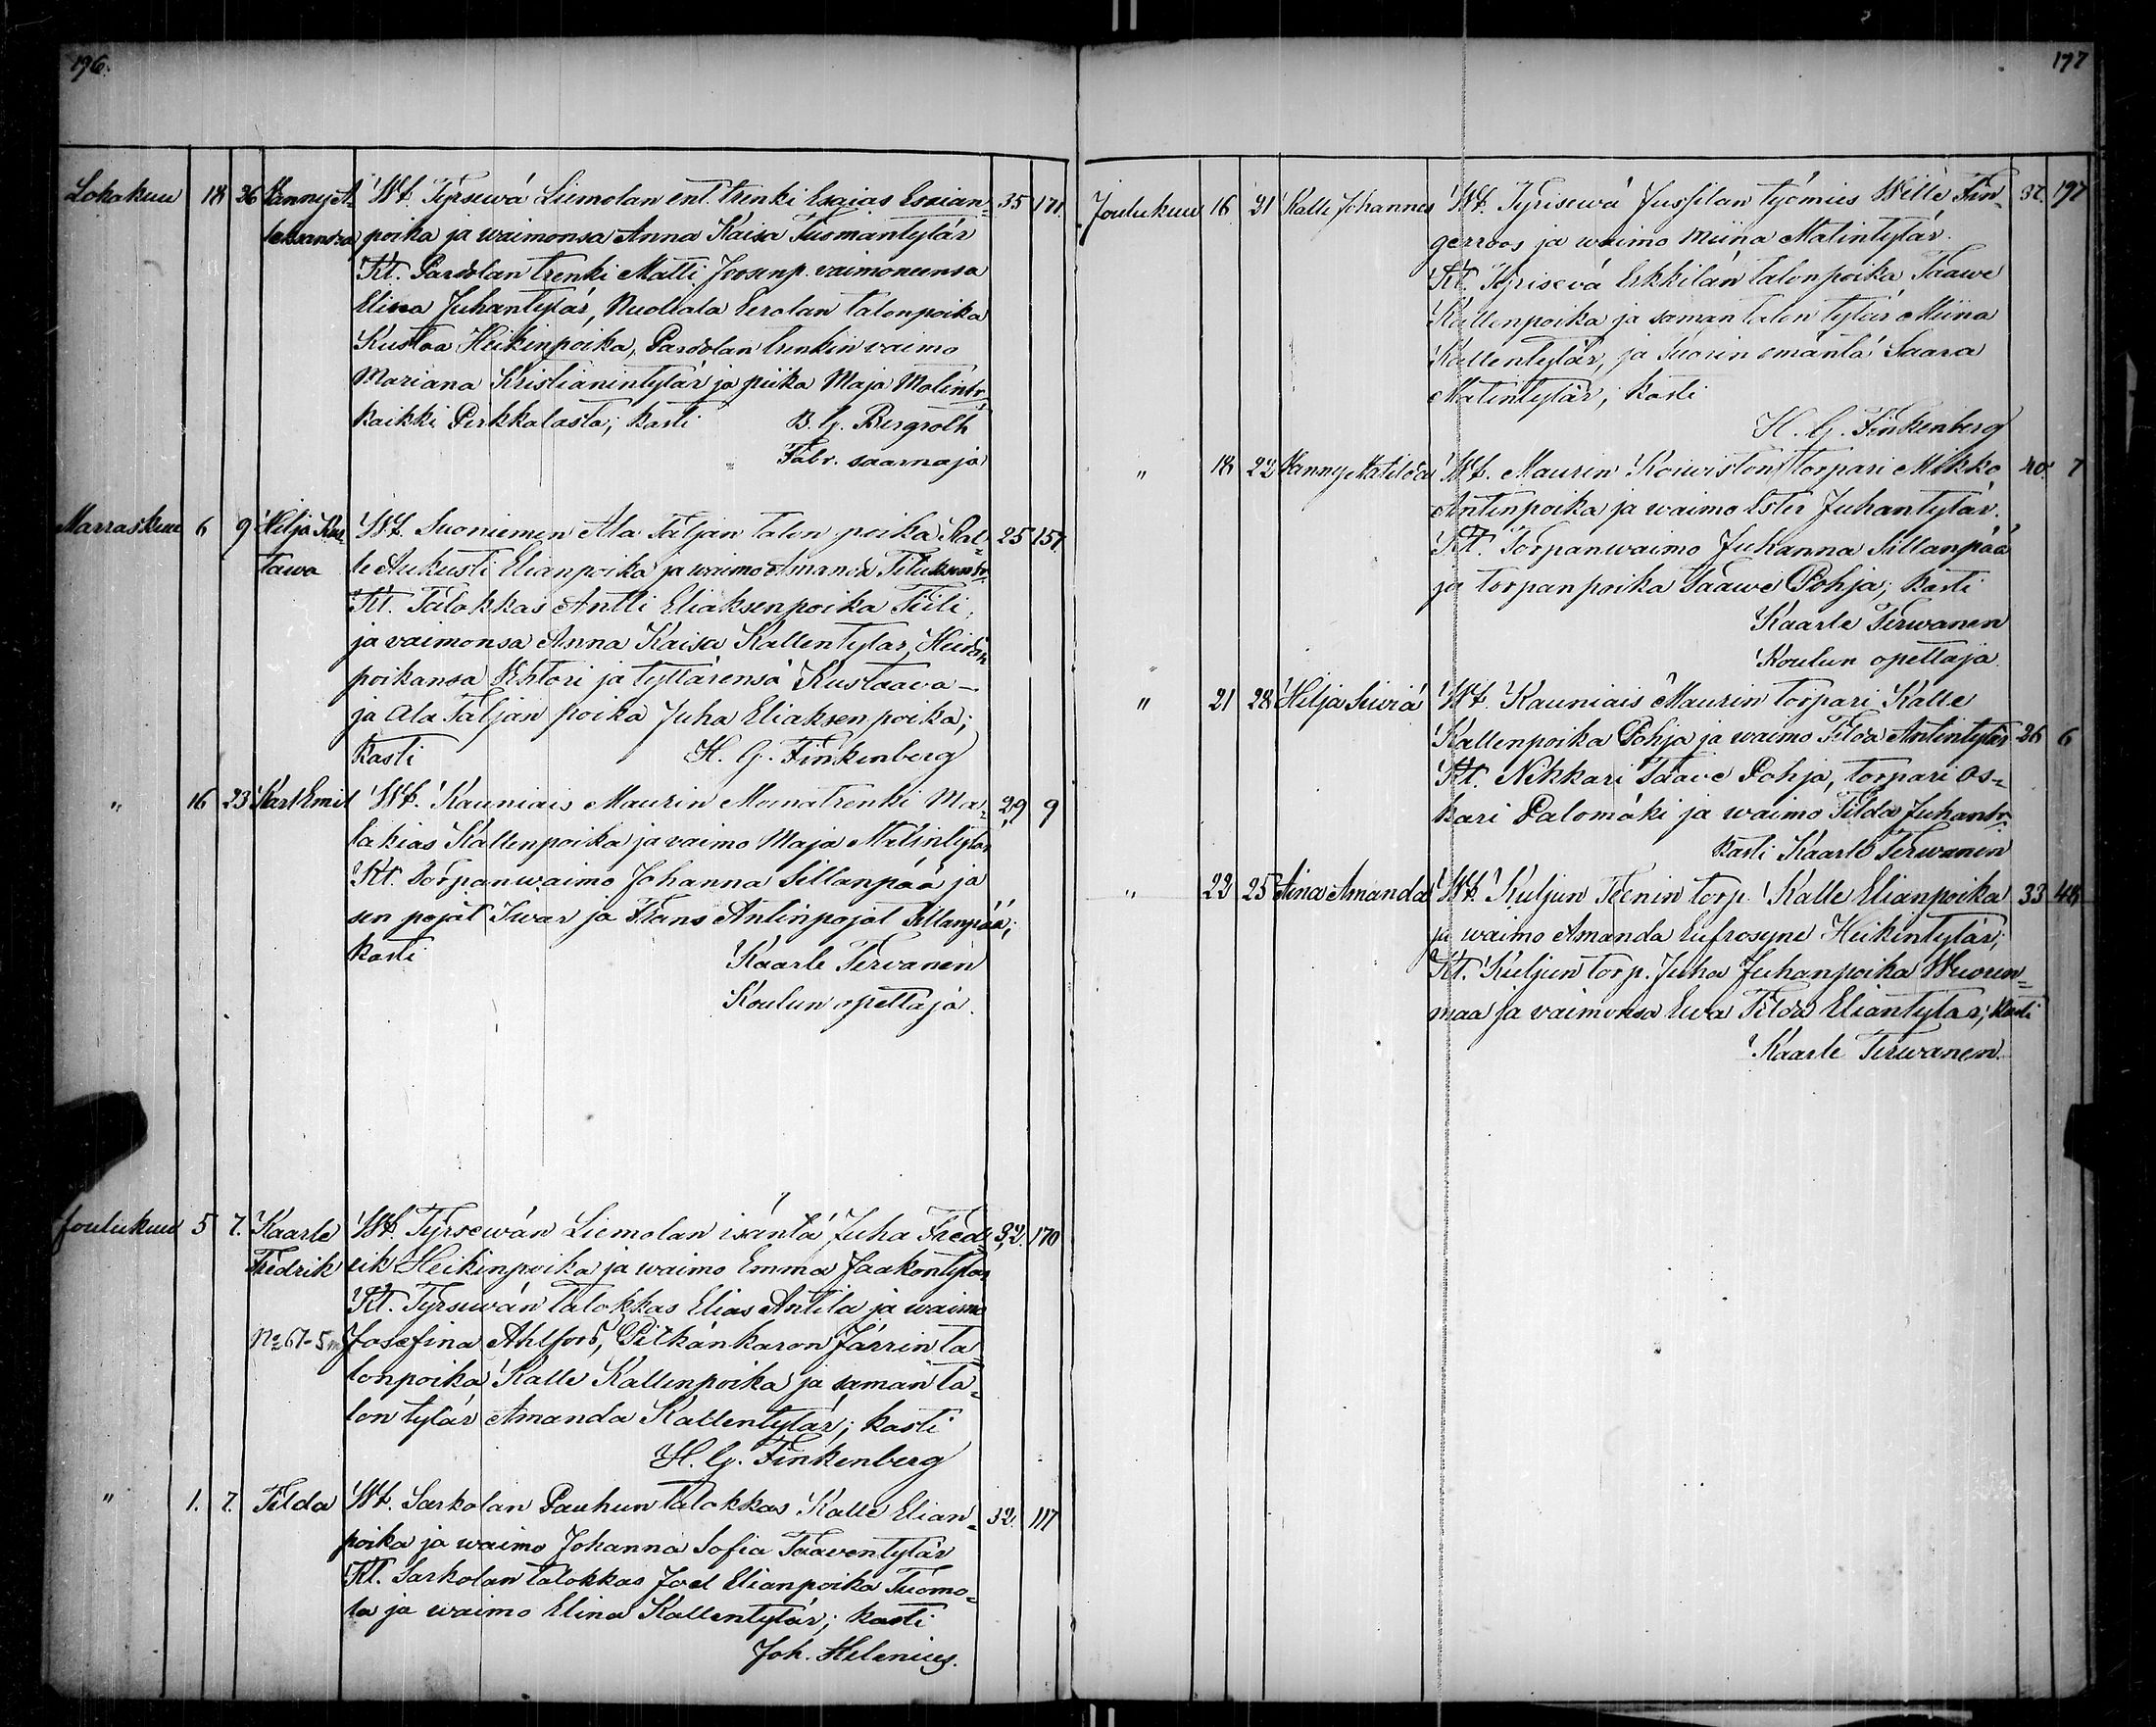 196.
Lokakuu 18 26 Fanny A- Wt. Tyrsewä Liemolan ent. trenki Esaias Esaian- 35 171.
leksandra poika ja waimonsa Anna Kaisa Tuomantytär
Kt. Pardolan trenki Matti Joosenp. vaimoneensa
Elina Juhantytär, Nuoliala Eerolan talonpoika
Kustaa Heikinpoika, Pardolan trenkin vaimo
Mariana Kristianintytär ja piika Maja Matintr.
kaikki Pirkkalasta; kasti B. G. Bergroth
Fabr. saarnaja
Marraskuu 6 9 Hilja Kus- Wt. Suoniemen Ala Taljan talon poika Kal- 25 157
tawa le Aukusti Elianpoika ja waimo Amanda Tituksentr.
Kt. Talokkas Antti Eliaksenpoika Tiili,
ja vaimonsa Anna Kaisa Kallentytär, Heidän
poikansa Wihtori ja tyttärensä Kustaava —
ja Ala Taljan poika Juha Eliaksenpoika;
Kasti H. G. Finkenberg
" 16 23 Karl Emil Wt. Kauniais Maurin Mamatrenki Ma- 29 9
lakias Kallenpoika ja vaimo Maja Matintytär
Kt. Torpanwaimo Johanna Sillanpää ja
sen pojat Iwar ja Frans Antinpojat Sillanpää;
kasti Kaarle Tervanen
Koulun opettaja.
Joulukuu 5 7. Kaarle Wt. Tyrsewän Liemolan isäntä Juha Fred- 32. 170
Fredrik rik Heikinpoika ja waimo Emma Jaakontytär
Kt. Tyrsewän talokkas Elias Antila ja waimo
No 67-5 m Josefina Ahlfors, Pitkänkaron Järrin ta-
lonpoika Kalle Kallenpoika ja saman ta-
lon tytär Amanda Kallentytär; kasti
H. G. Finkenberg
" 1. 7. Tilda Wt. Sarkolan Pauhun talokkas Kalle Elian- 32. 117
poika ja waimo Johanna Sofia Taaventytär
Kt. Sarkolan talokkas Joel Elianpoika Tuomo-
la ja waimo Elina Kallentytär; kasti
Joh. Helenius.
197
Joulukuu 16 21 Kalle Johannes Wt. Tyrisewä Jussilan työmies Wille Fin- 37. 197
gerroos ja waimo Miina Matintytär.
Kt. Tyrisevä Erkkilän talonpoika Taawe
Kallenpoika ja saman talon tytär Miina
Kallentytär, ja Tuorin emäntä Saara
Matintytär; kasti
H. G. Finkenberg
" 18 22 Fanny Matilda Wt. Maurin Koiwiston torpari Mikko 40. 7
Antinpoika ja waimo Ester Juhantytär.
Kt. Torpanwaimo Juhanna Sillanpää
ja torpanpoika Taawe Pohja; kasti
Kaarle Terwanen
Koulun opettaja.
" 21 28 Hilja Siiviä Wt. Kauniais Maurin torpari Kalle
Kallenpoika Pohja ja waimo Tilda Antintytär 26 6
Kt. Nikkari Taave Pohja, torpari Os-
kari Palomäki ja waimo Tilda Juhantr.
kasti Kaarle Terwanen
" 22 25 Aina Amanda Wt. Kuljun Teenin torp. Kalle Elianpoika 33 48
ja waimo Amanda Eufrosyne Heikintytär;
Kt. Kuljun torp. Juha Juhanpoika Wuoren-
maa ja vaimonsa Ewa Tilda Eliantytär; kasti
Kaarle Terwanen.